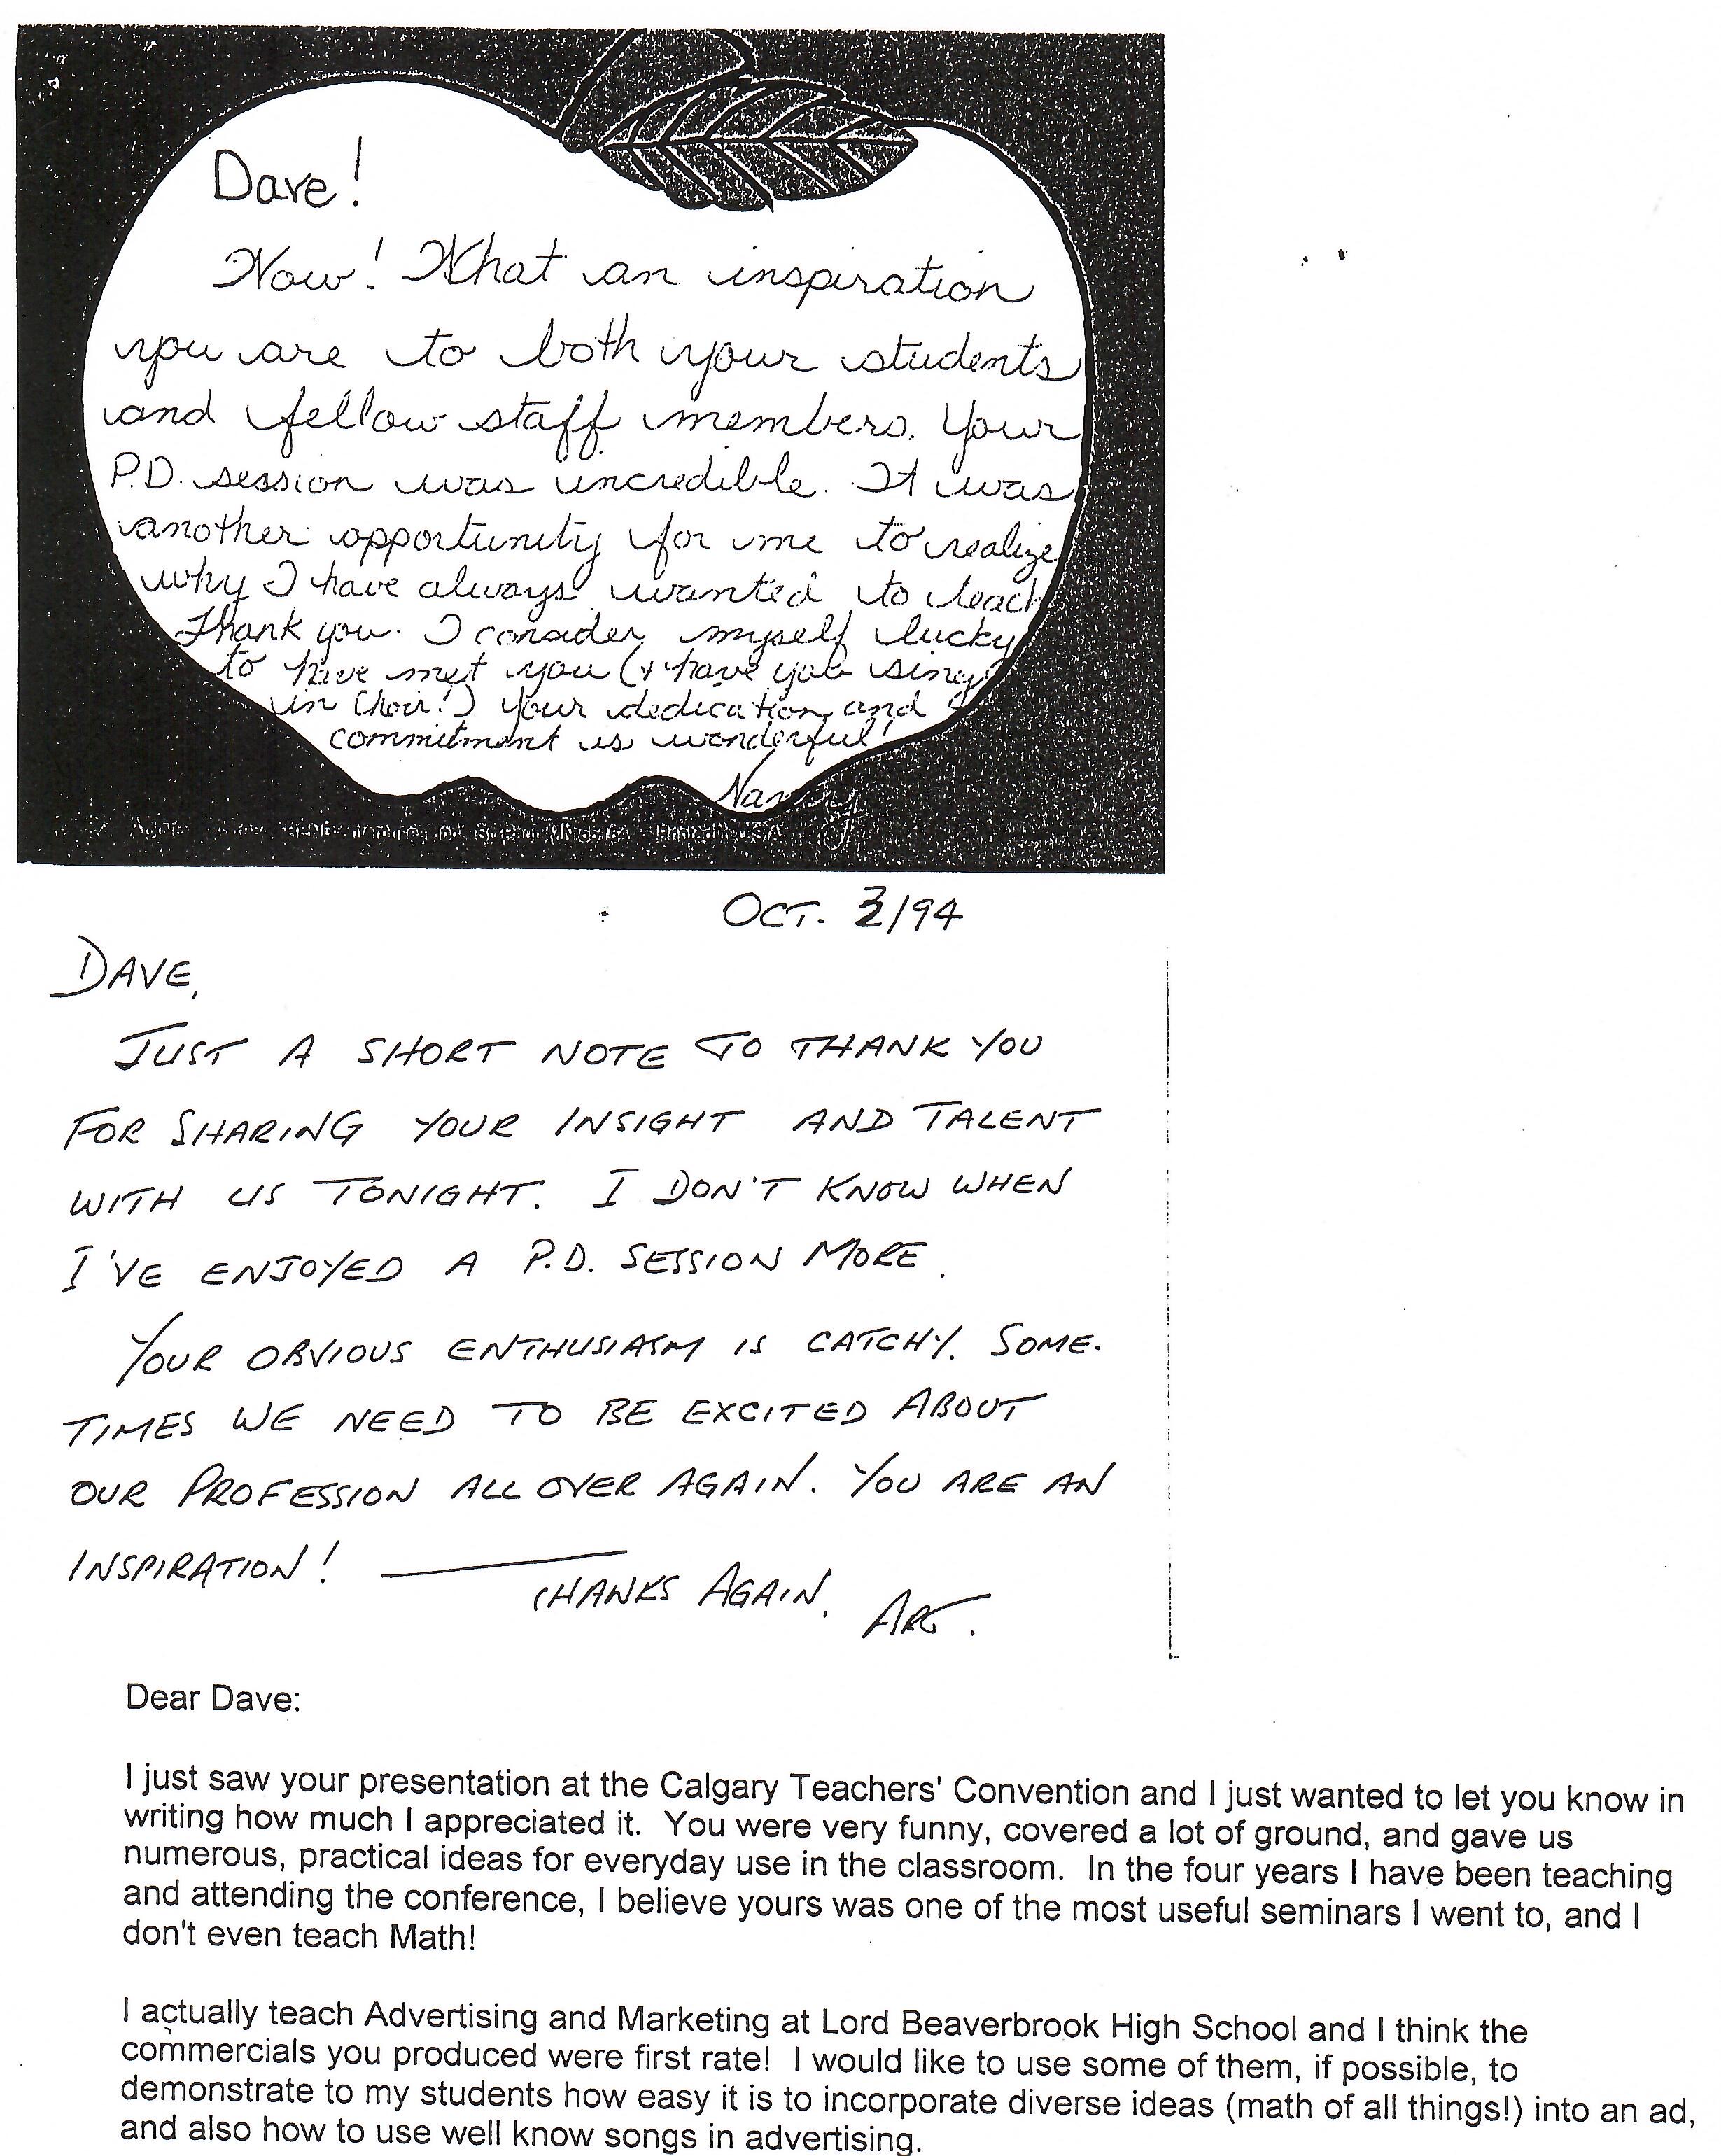 Dave!
Wow! What an inspiration
you are to both your students
and fellow staff members. Your
P.D. session was incredible. It was
another opportunity for me to realize
why I have always wanted to teach
Thank you. I consider myself lucky
to have met you (+ have you sing
in Choir!) Your dedication and
commitment is wonderful!
Nancy
Printed in U.S.A.
OCT. 3/94
DAVE,
JUST A SHORT NOTE TO THANK YOU
FOR SHARING YOUR INSIGHT AND TALENT
WITH US TONIGHT. I DON'T KNOW WHEN
I'VE ENJOYED A P.D. SESSION MORE.
YOUR OBVIOUS ENTHUSIASM IS CATCHY. SOME-
TIMES WE NEED TO BE EXCITED ABOUT
OUR PROFESSION ALL OVER AGAIN. YOU ARE AN
INSPIRATION!
THANKS AGAIN,
ART.
Dear Dave:
I just saw your presentation at the Calgary Teachers' Convention and I just wanted to let you know in
writing how much I appreciated it. You were very funny, covered a lot of ground, and gave us
numerous, practical ideas for everyday use in the classroom. In the four years I have been teaching
and attending the conference, I believe yours was one of the most useful seminars I went to, and I
don't even teach Math!
I actually teach Advertising and Marketing at Lord Beaverbrook High School and I think the
commercials you produced were first rate! I would like to use some of them, if possible, to
demonstrate to my students how easy it is to incorporate diverse ideas (math of all things!) into an ad,
and also how to use well know songs in advertising.